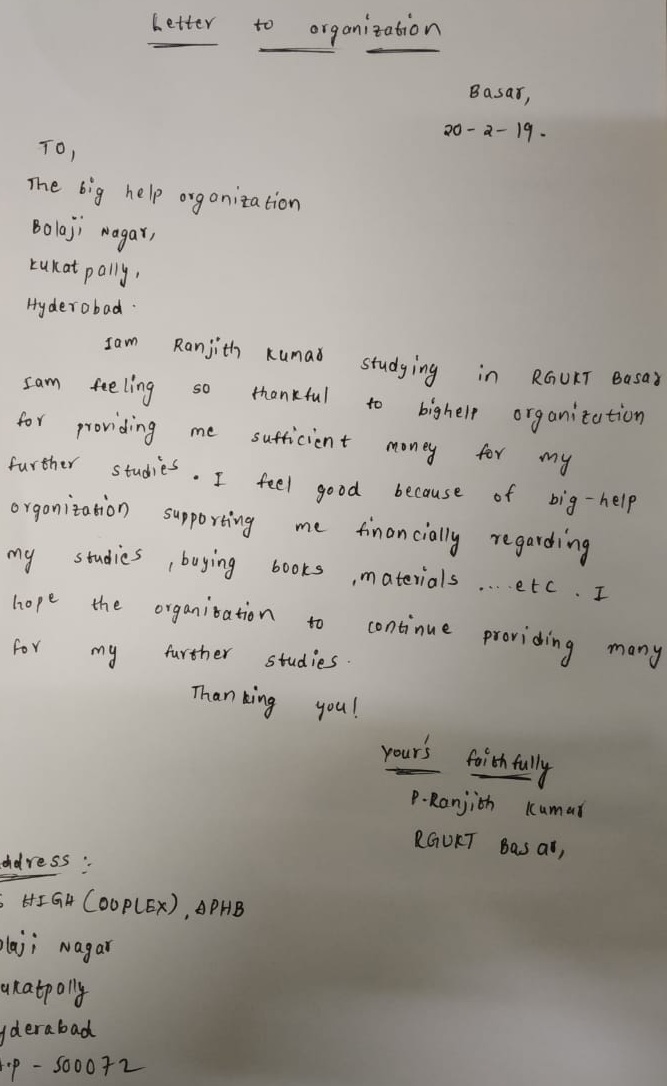 Letter to organization
Basar,
20-2-19.
TO,
The big help organization
Balaji Nagar,
kukatpally,
Hyderabad.
Iam Ranjith Kumar studying in RGUKT Basar
Iam feeling so thankful to bighelp organization
for providing me sufficient money for my
further studies. I feel good because of big-help
organization supporting me financially regarding
my studies, buying books, materials ....etc. I
hope the organization to continue providing many
for my further studies.
Thanking you!
your's faithfully
P.Ranjith Kumar
RGUKT Basar,
address :-
HIGH (DUPLEX), APHB
laji Nagar
ukatpally
yderabad
.P - 500072